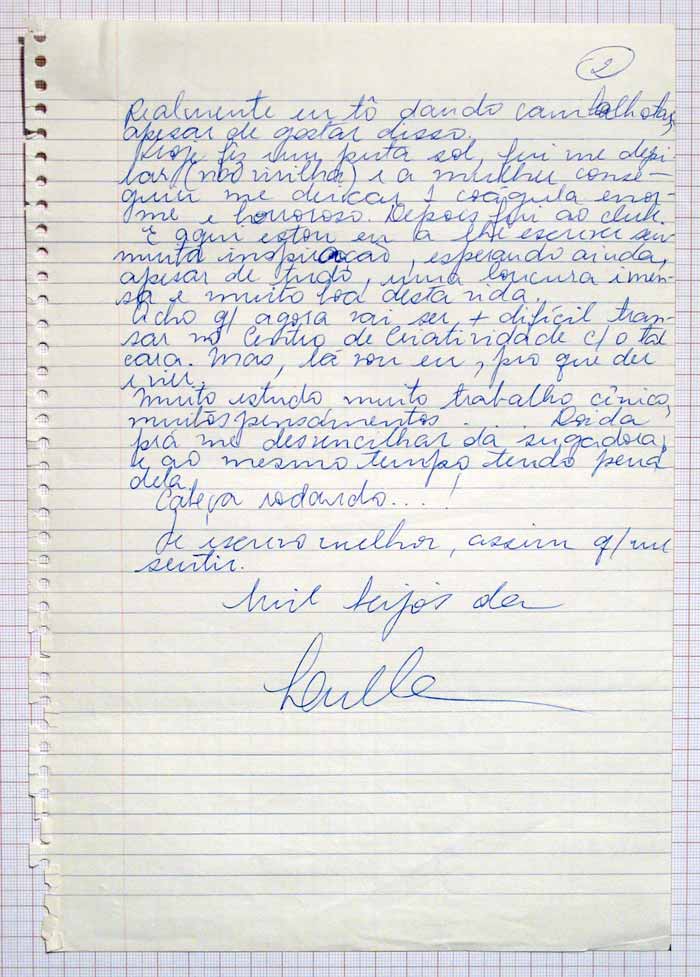 2
Realmente eu tô dando cambalhotas,
apesar de gostar disso.
Hoje fiz um puta sol, fui me depi-
lar (na virilha) e a mulher conse-
guiu me deixar 1 coágulo enor-
me e horroroso. Depois fui ao clube.
E aqui estou eu a lhe escrever sem
muita inspiração, esperando ainda,
apesar de tudo, uma loucura imen-
sa e muito boa desta vida.
Acho q/ agora vai ser + difícil tran-
sar no Centro de Criatividade c/ o tal
cara. Mas, lá vou eu, pro que der
e vier.
Muito estudo muito trabalho cênico,
muitos pensamentos . . . . Doida
prá me desvencilhar da sugadora,
e ao mesmo tempo tendo pena
dela.
Cabeça rodando. . . . !
Te escrevo melhor, assim q/ me
sentir.
Mil beijos da